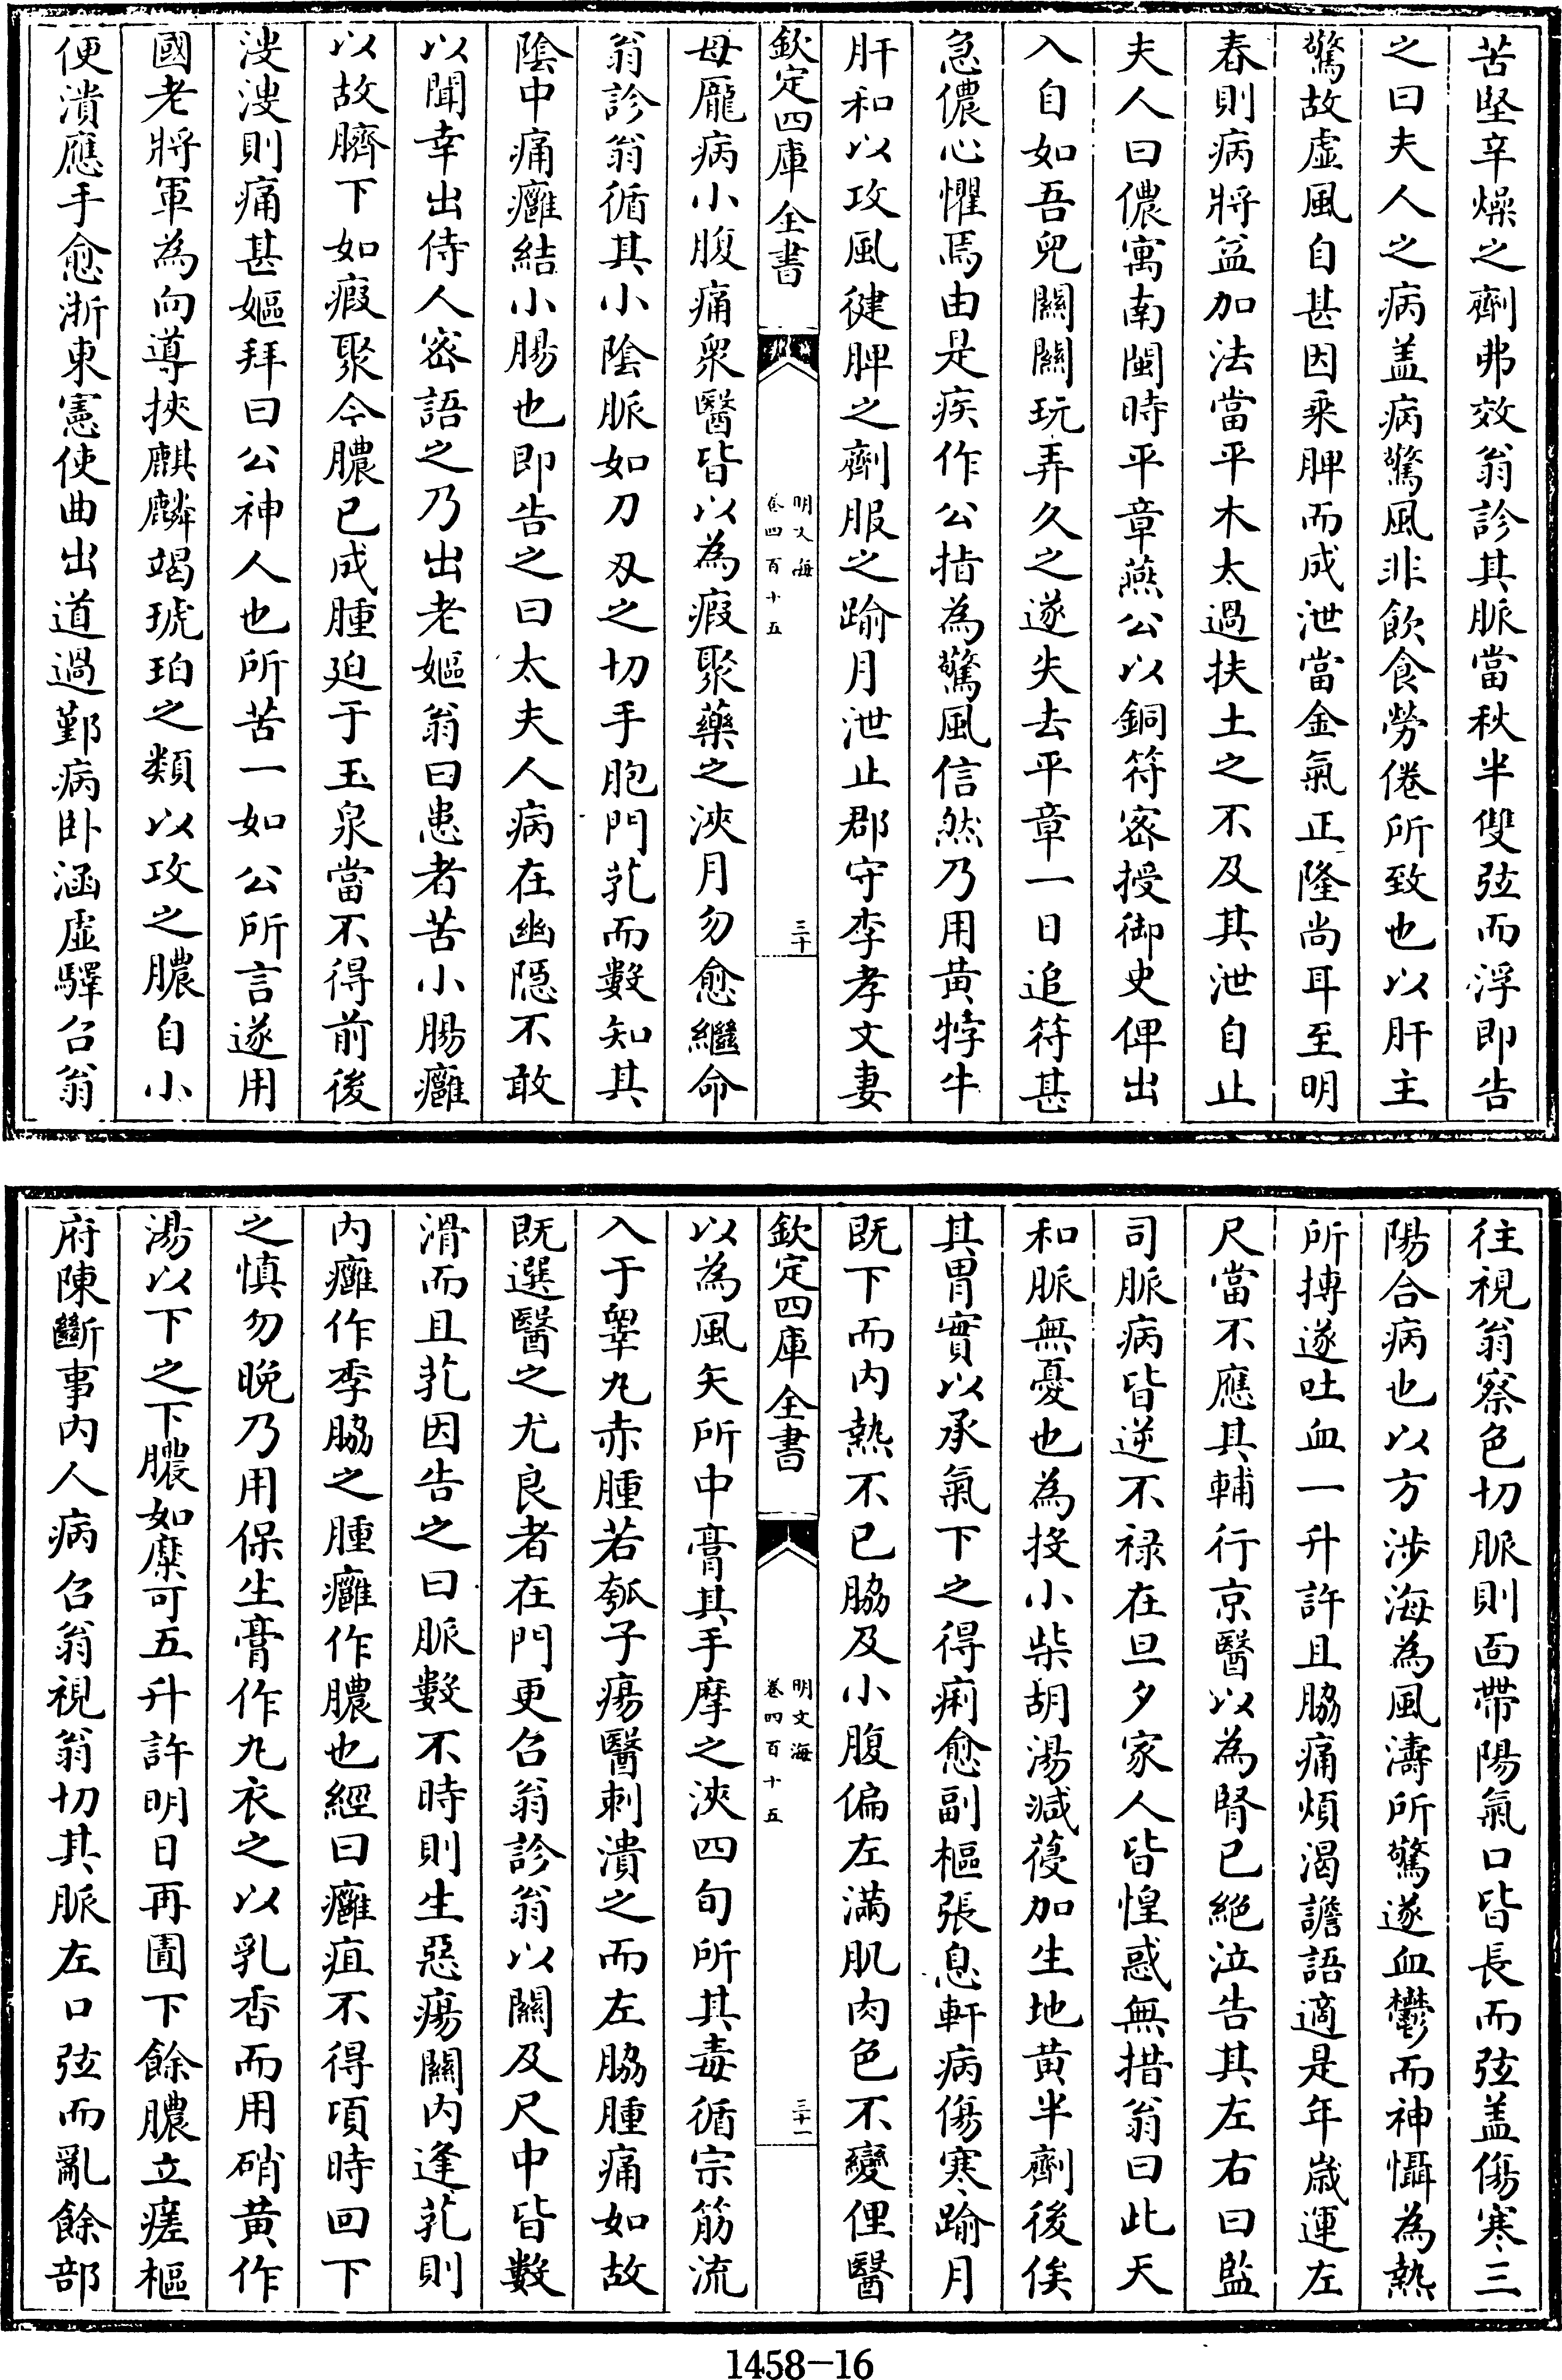 苦堅辛燥之劑弗效翁診其脈當秋半雙弦而浮即告
之曰夫人之病盖病驚風非飲食勞倦所致也以肝主
驚故虛風自甚因乘脾而成泄當金氣正隆尚耳至明
春則病將益加法當平木太過扶土之不及其泄自止
夫人曰儂寓南閩時平章燕公以銅符密授御史俾出
入自如吾兒關關玩弄久之遂失去平章一日追符甚
急儂心懼焉由是疾作公指為驚風信然乃用黄牸牛
肝和以攻風健脾之劑服之踰月泄止郡守李孝文妻
欽定四庫全書
明文海
卷四百十五
三十
母龎病小腹痛衆醫皆以為瘕聚藥之浹月勿愈繼命
翁診翁循其小陰脈如刀刄之切手胞門芤而數知其
陰中痛癰結小腸也即告之曰太夫人病在幽隠不敢
以聞幸出侍人密語之乃出老嫗翁曰患者苦小腸癰
以故臍下如瘕聚今膿已成腫廹于玉泉當不得前後
溲溲則痛甚嫗拜曰公神人也所苦一如公所言遂用
國老將軍為向導挾麒麟竭琥珀之類以攻之膿自小
便潰應手愈浙東憲使曲出道過鄞病卧涵虛驛召翁
往視翁察色切脈則面帶陽氣口皆長而弦盖傷寒三
陽合病也以方涉海為風濤所驚遂血鬱而神懾為熱
所搏遂吐血一升許且脇痛煩渴譫語適是年歲運左
尺當不應其輔行京醫以為腎已絶泣告其左右曰監
司脈病皆逆不禄在旦夕家人皆惶惑無措翁曰此天
和脈無憂也為投小柴胡湯減葠加生地黄半劑後俟
其胃實以承氣下之得痢愈副樞張息軒病傷寒踰月
既下而内熱不已脇及小腹偏左滿肌肉色不變俚醫
欽定四庫全書
明文海
卷四百十五
三十一
以為風矢所中膏其手摩之浹四旬所其毒循宗筋流
入于睾丸赤腫若瓠子瘍醫刺潰之而左脇腫痛如故
既選醫之尤良者在門更召翁診翁以關及尺中皆數
滑而且芤因告之曰脈數不時則生惡瘍關内逢芤則
内癰作季脇之腫癰作膿也經曰癰疽不得項時回下
之慎勿晚乃用保生膏作丸衣之以乳香而用硝黄作
湯以下之下膿如糜可五升許明日再圊下餘膿立瘥樞
府陳斷事内人病召翁視翁切其脈左口弦而亂餘部
1458-16